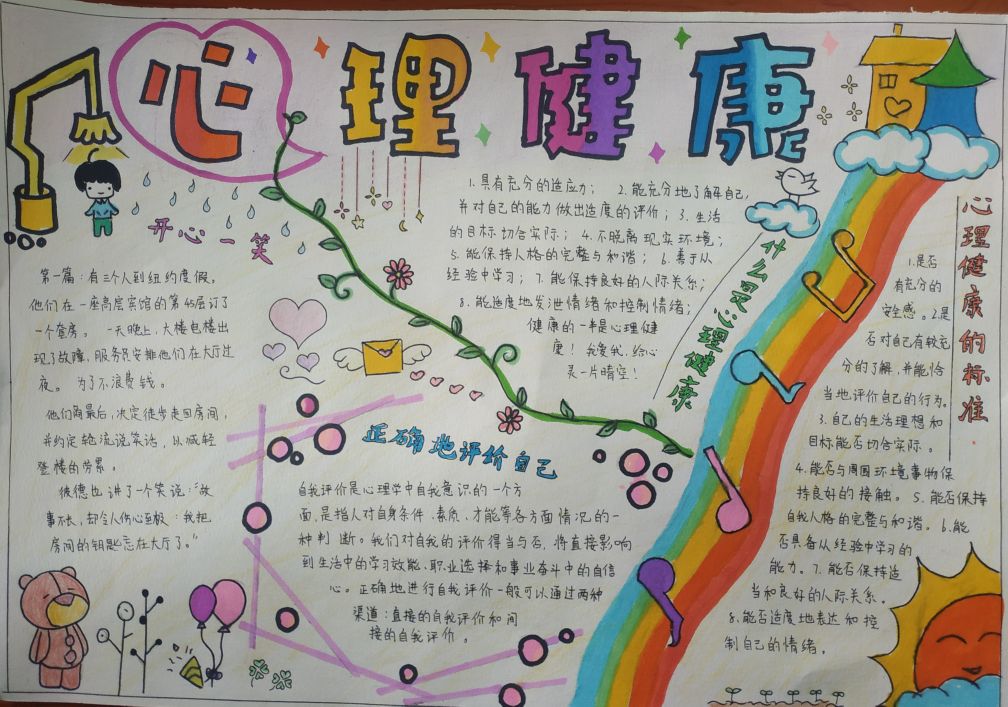 心理健康
开心一笑
第一篇：有三个人到纽约度假。
他们在一座高层宾馆的第45层订了
一个套房。一天晚上，大楼电梯出
现了故障，服务员安排他们在大厅过
夜。为了不浪费钱。
他们商最后，决定徒步走回房间，
并约定轮流说笑话，以减轻
登楼的劳累。
彼德也讲了一个笑说：“故
事不长，却令人伤心至极：我把
房间的钥匙忘在大厅了。”
1.具有充分的适应力； 2.能充分地了解自己，
并对自己的能力做出适度的评价；3.生活
的目标切合实际； 4.不脱离现实环境；
5.能保持人格的完整与和谐； 6.善于从
经验中学习；7.能保持良好的人际关系；
8.能适度地发泄情绪和控制情绪；
健康的一半是心理健
康！我爱我，给心
灵一片晴空！
什么是心理健康
正确地评价自己
自我评价是心理学中自我意识的一个方
面，是指人对自身条件、素质、才能等各方面情况的一
种判断。我们对自我的评价得当与否，将直接影响
到生活中的学习效能、职业选择和事业奋斗中的自信
心。正确地进行自我评价一般可以通过两种
渠道：直接的自我评价和间
接的自我评价。
心理健康的标准
1.是否
有充分的
安全感。2.是
否对自己有较充
分的了解，并能恰
当地评价自己的行为。
3.自己的生活理想和
目标能否切合实际。
4.能否与周围环境事物保
持良好的接触。5.能否保持
自我人格的完整与和谐。6.能
否具备从经验中学习的
能力。7.能否保持适
当和良好的人际关系。
8.能否适度地表达和控
制自己的情绪。